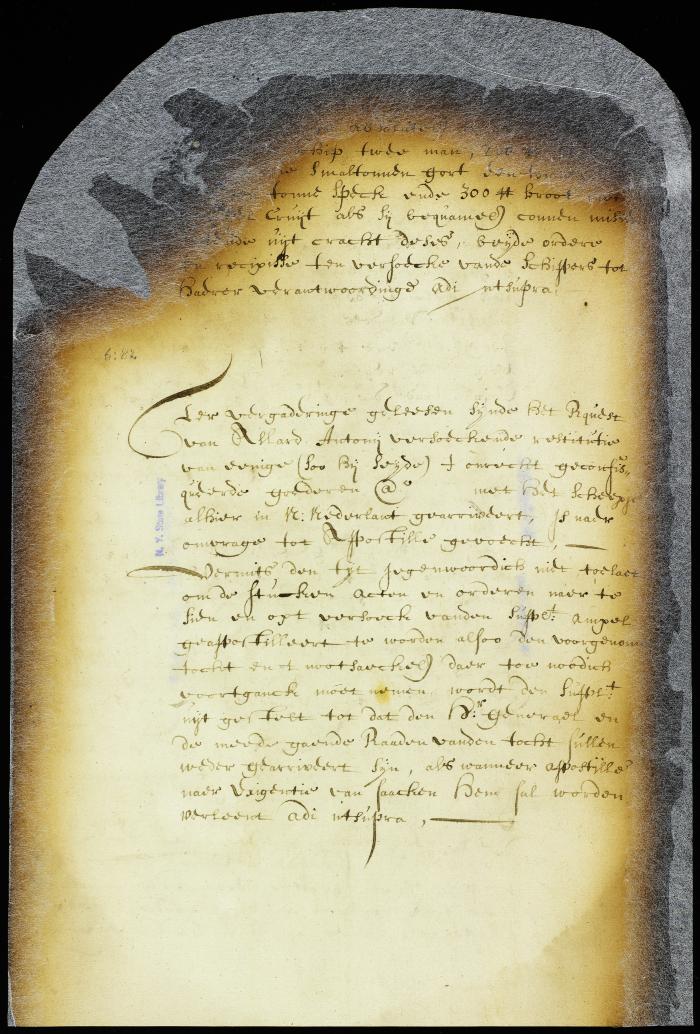 absolute
hip twee man,
smaltonnen gort een
tonne Speck ende 300 ℔ broot
Cruijt als sij bequamel) connen
uijt cracht deses, beyde ordere
en recipisse ten versoecke vande Schippers tot
haerer verantwoordinge Adi utsupra
6:82
Ter vergaderinge geleesen sijnde het Rquest
van Allard Antonij versoeckende restitutie
van eenige (soo hij seyde) t onrecht geconfis=
queerde goederen @° met het scheepje
alhier in N: Nederlant gearriveert, Is naer
omvrage tot Appostille gevoecht,
Vermits den tijt jegenwoordich niet toelaet
om de stucken acten en orderen naer te
sien en opt versoeck vanden Supplt ampel
geappostilleert te worden alsoo den voorgenom
tocht en t nootsaeckel) daer toe noodich
voortganck moet nemen, wordt den Supplt
uijt gestelt tot dat den Hr: Generael en
de meede gaende Raaden vanden tocht sullen
weder gearriveert sijn, als wanneer appostille
naer Exigentie van saacken hem sal worden
verleent Adi utsupra,
N. Y. State Library